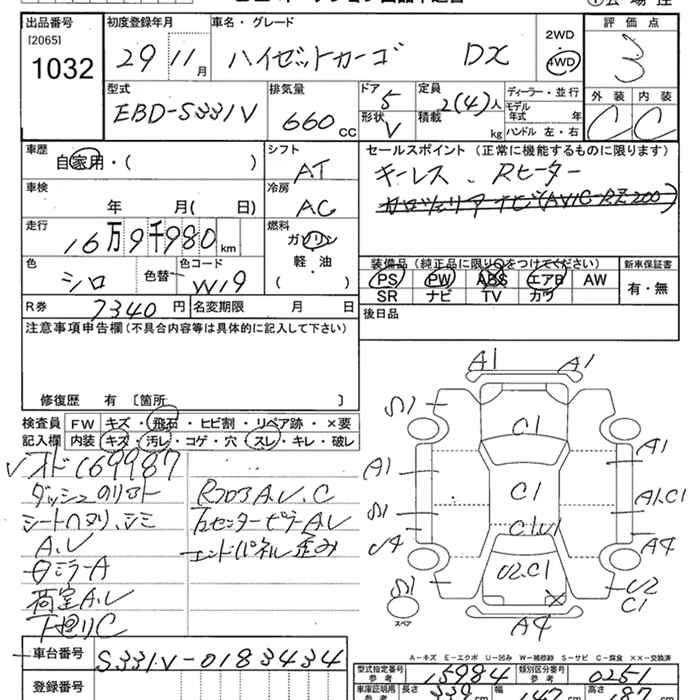 出品番号 初度登録年月 車名・グレード 2WD 評価点
[2065] 1032 29 11月 ハイゼットカーゴ DX 4WD 3
外装 内装
C C
型式 EBD-S331V 排気量 660cc ドア 5 定員 2(4)人 ディーラー・並行
形状 V 積載 kg モデル年式 年
ハンドル 左・右
車歴 自家用・( ) シフト AT
セールスポイント (正常に機能するものに限ります)
キーレス、Rヒーター
車検 年 月( 日) 冷房 AC
走行 16万9千980km 燃料 ガソリン
軽・油
( )
色 シロ 色替 色コード W19
装備品 (純正品に限り○をつけてください) 新車保証書
PS PW ABS エアB AW 有・無
SR ナビ TV カワ
R券 7340円 名変期限 月 日
後日品
注意事項申告欄(不具合内容等は具体的に記入して下さい)
修復歴 有 [箇所 ]
検査員 FW キズ・飛石・ヒビ割・リペア跡・×要
記入欄 内装 キズ・汚レ・コゲ・穴・スレ・キレ・破レ
オド169987
シート シミ
A.U
ミラーA
荷室A.U
下廻りC
RフロアA.U.C
センターピラーA.U
エンドパネル歪み
A1 A1
C1
A1 A1
C1 A1.C1
C1.U1
U4 A4
U2.C1 U2
C1
スペア
A4
A-キズ E-エクボ U-凹み W-補修跡 S-サビ C-腐食 ××-交換済
車台番号 S331V-0183434
型式指定番号 参考 15984 類別区分番号 参考 0251
登録番号
車庫証明用 参考 長さ 339 幅 147 高さ 187